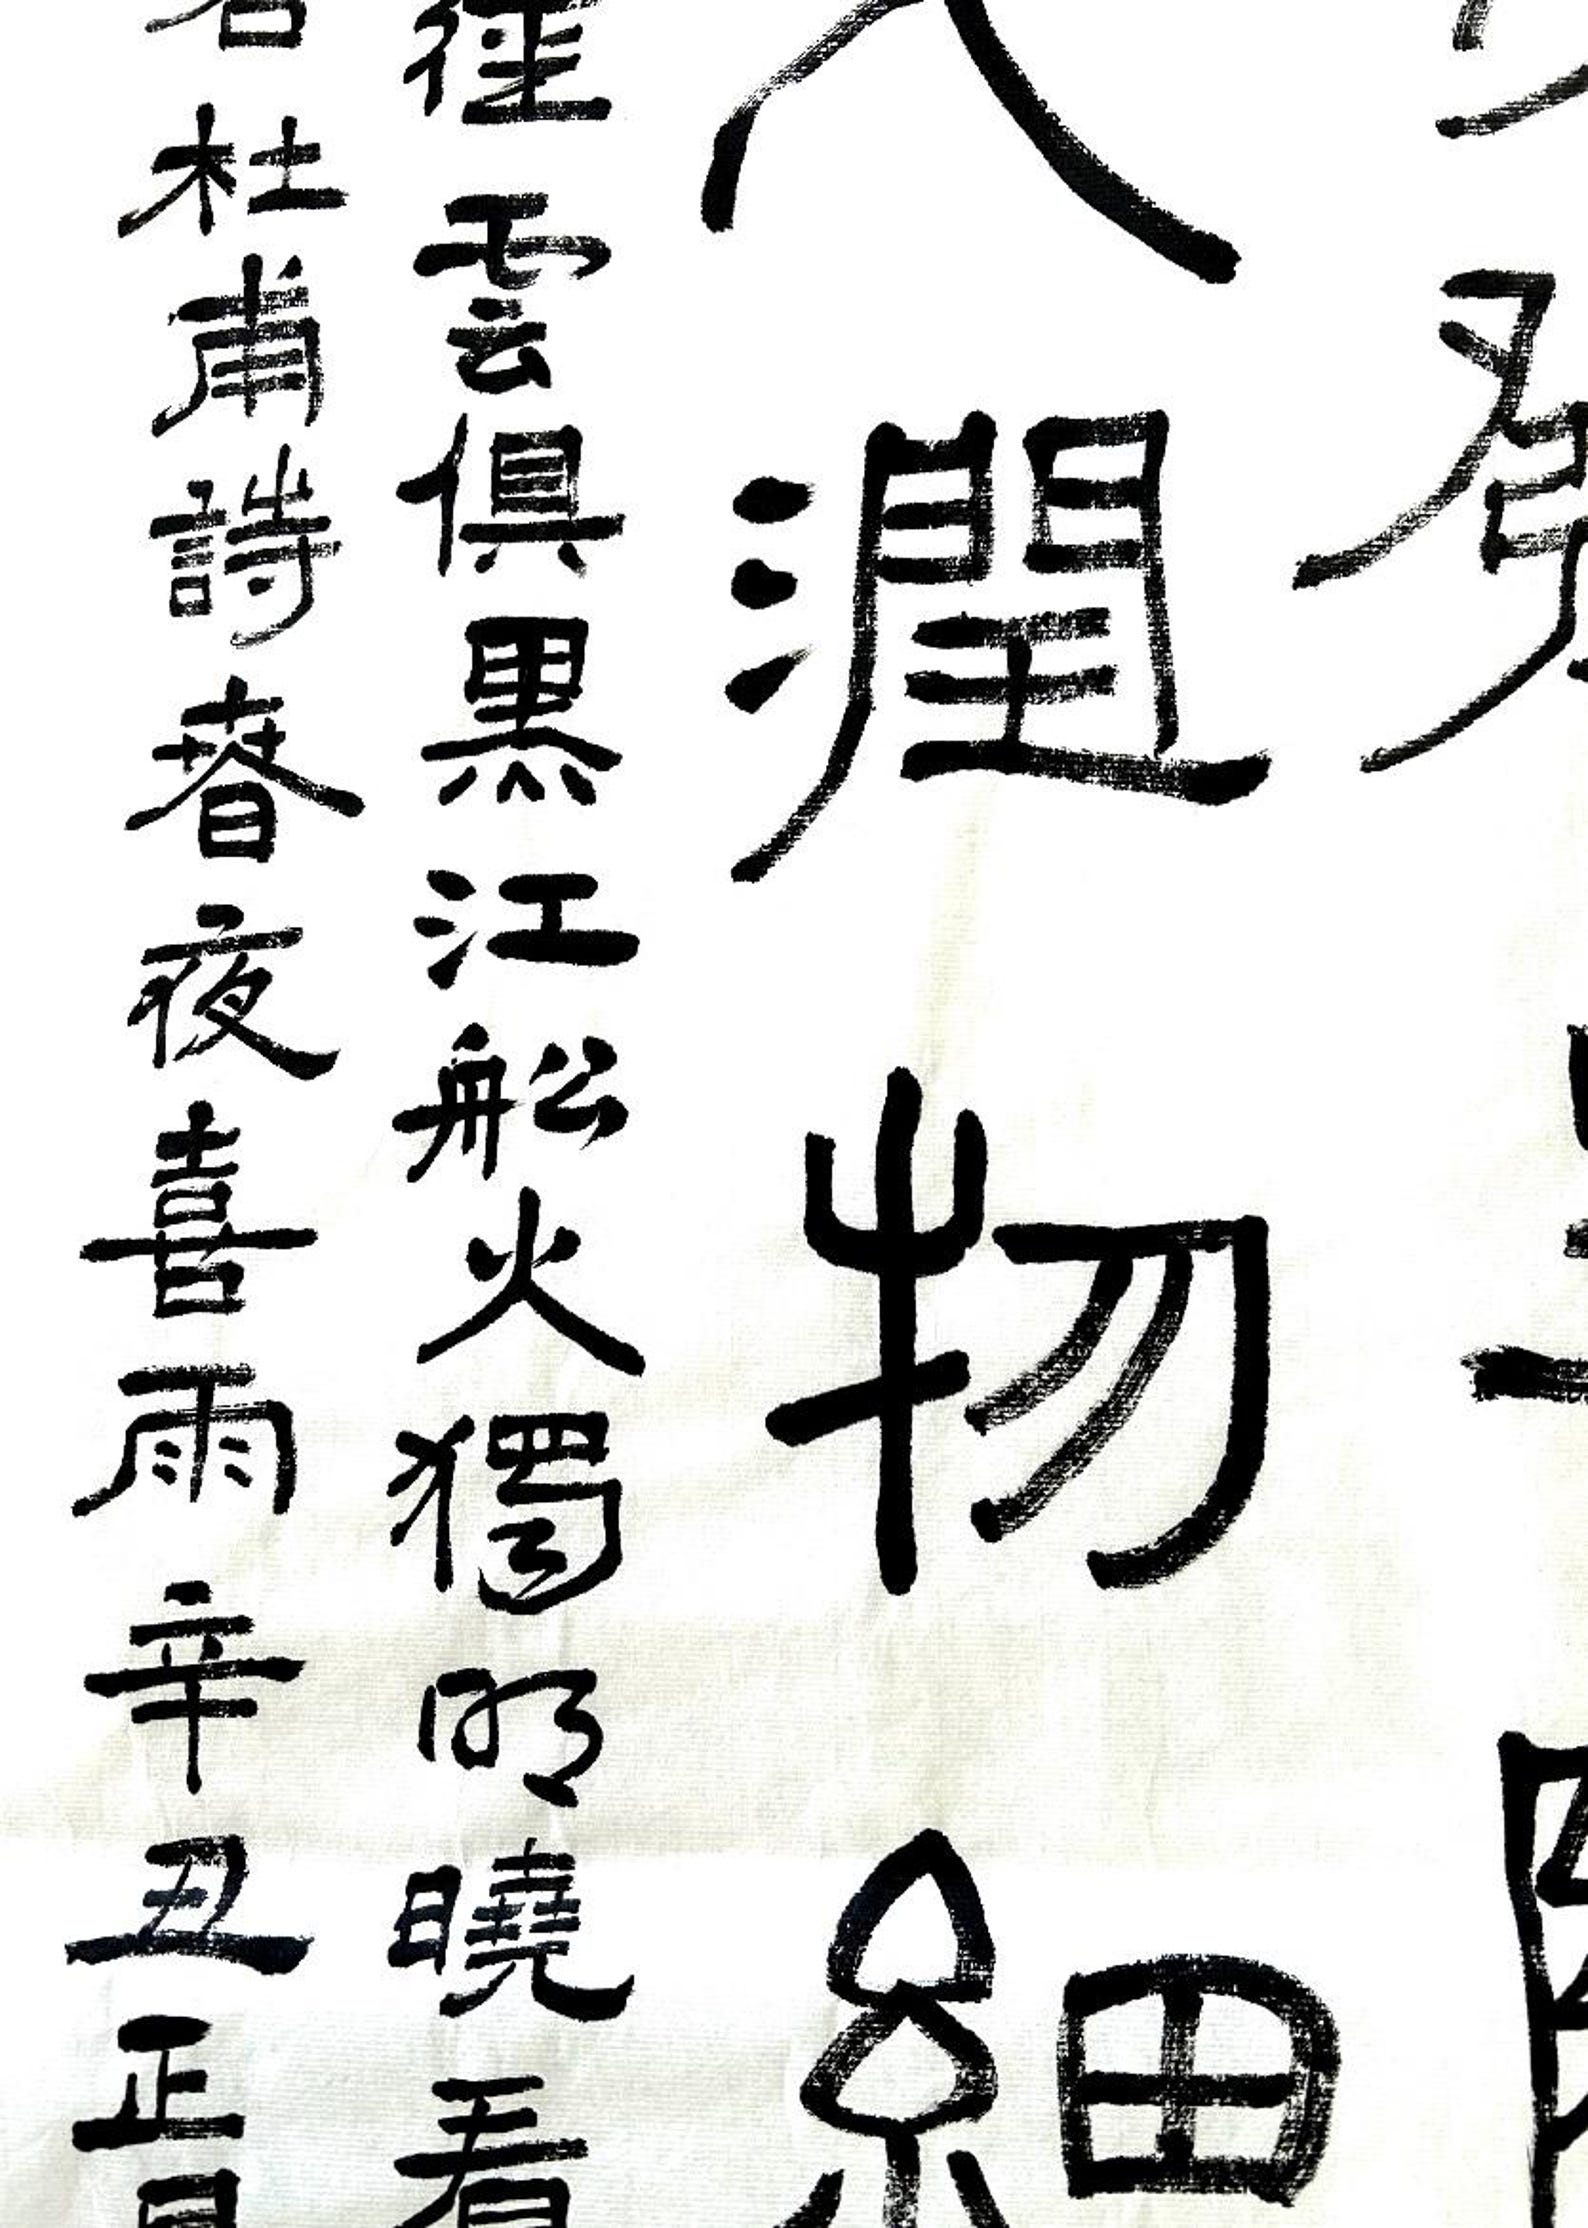 發
潤物細
徑雲俱黑江船火獨明曉看
右杜甫詩春夜喜雨辛丑正月